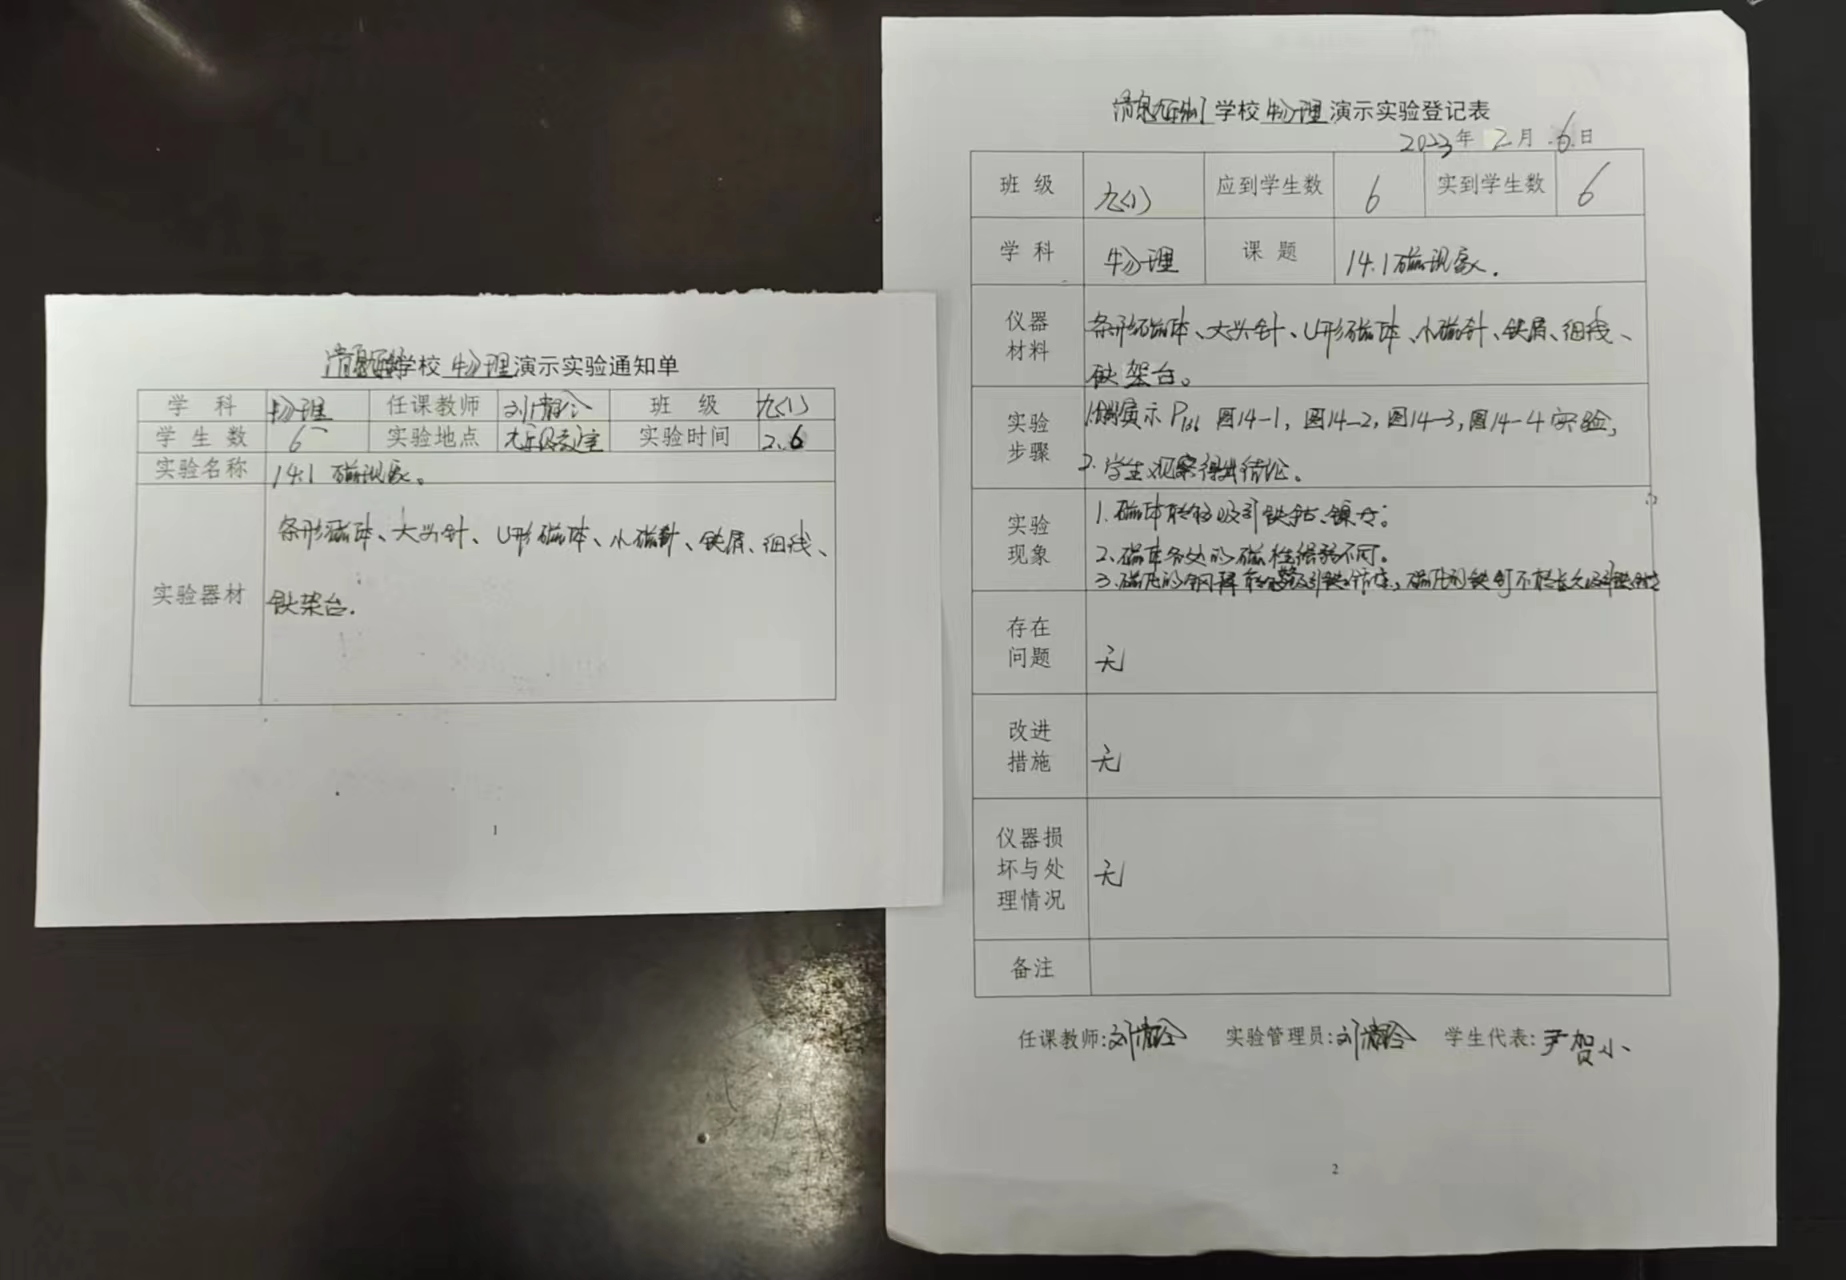 学校 物理 演示实验通知单
学 科 物理 任课教师 班 级 九(1)
学 生 数 6 实验地点 九年级教室 实验时间 2.6
实验名称 14.1 磁现象。
实验器材 条形磁体、大头针、U形磁体、小磁针、铁屑、细线、
铁架台.
1
学校 物理 演示实验登记表
2023年 2月 6日
班 级 九(1) 应到学生数 6 实到学生数 6
学 科 物理 课 题 14.1磁现象.
仪器
材料
条形磁体、大头针、U形磁体、小磁针、铁屑、细线、
铁架台。
实验
步骤
演示 图14-1, 图14-2, 图14-3, 图14-4实验,
2. 学生观察得出结论。
实验
现象
1. 磁体能够吸引铁、钴、镍
2. 磁体各处的磁性强弱不同。
3. 磁化的钢棒
存在
问题
无
改进
措施
无
仪器损
坏与处
理情况
无
备注
任课教师: 实验管理员: 学生代表:尹贺小
2